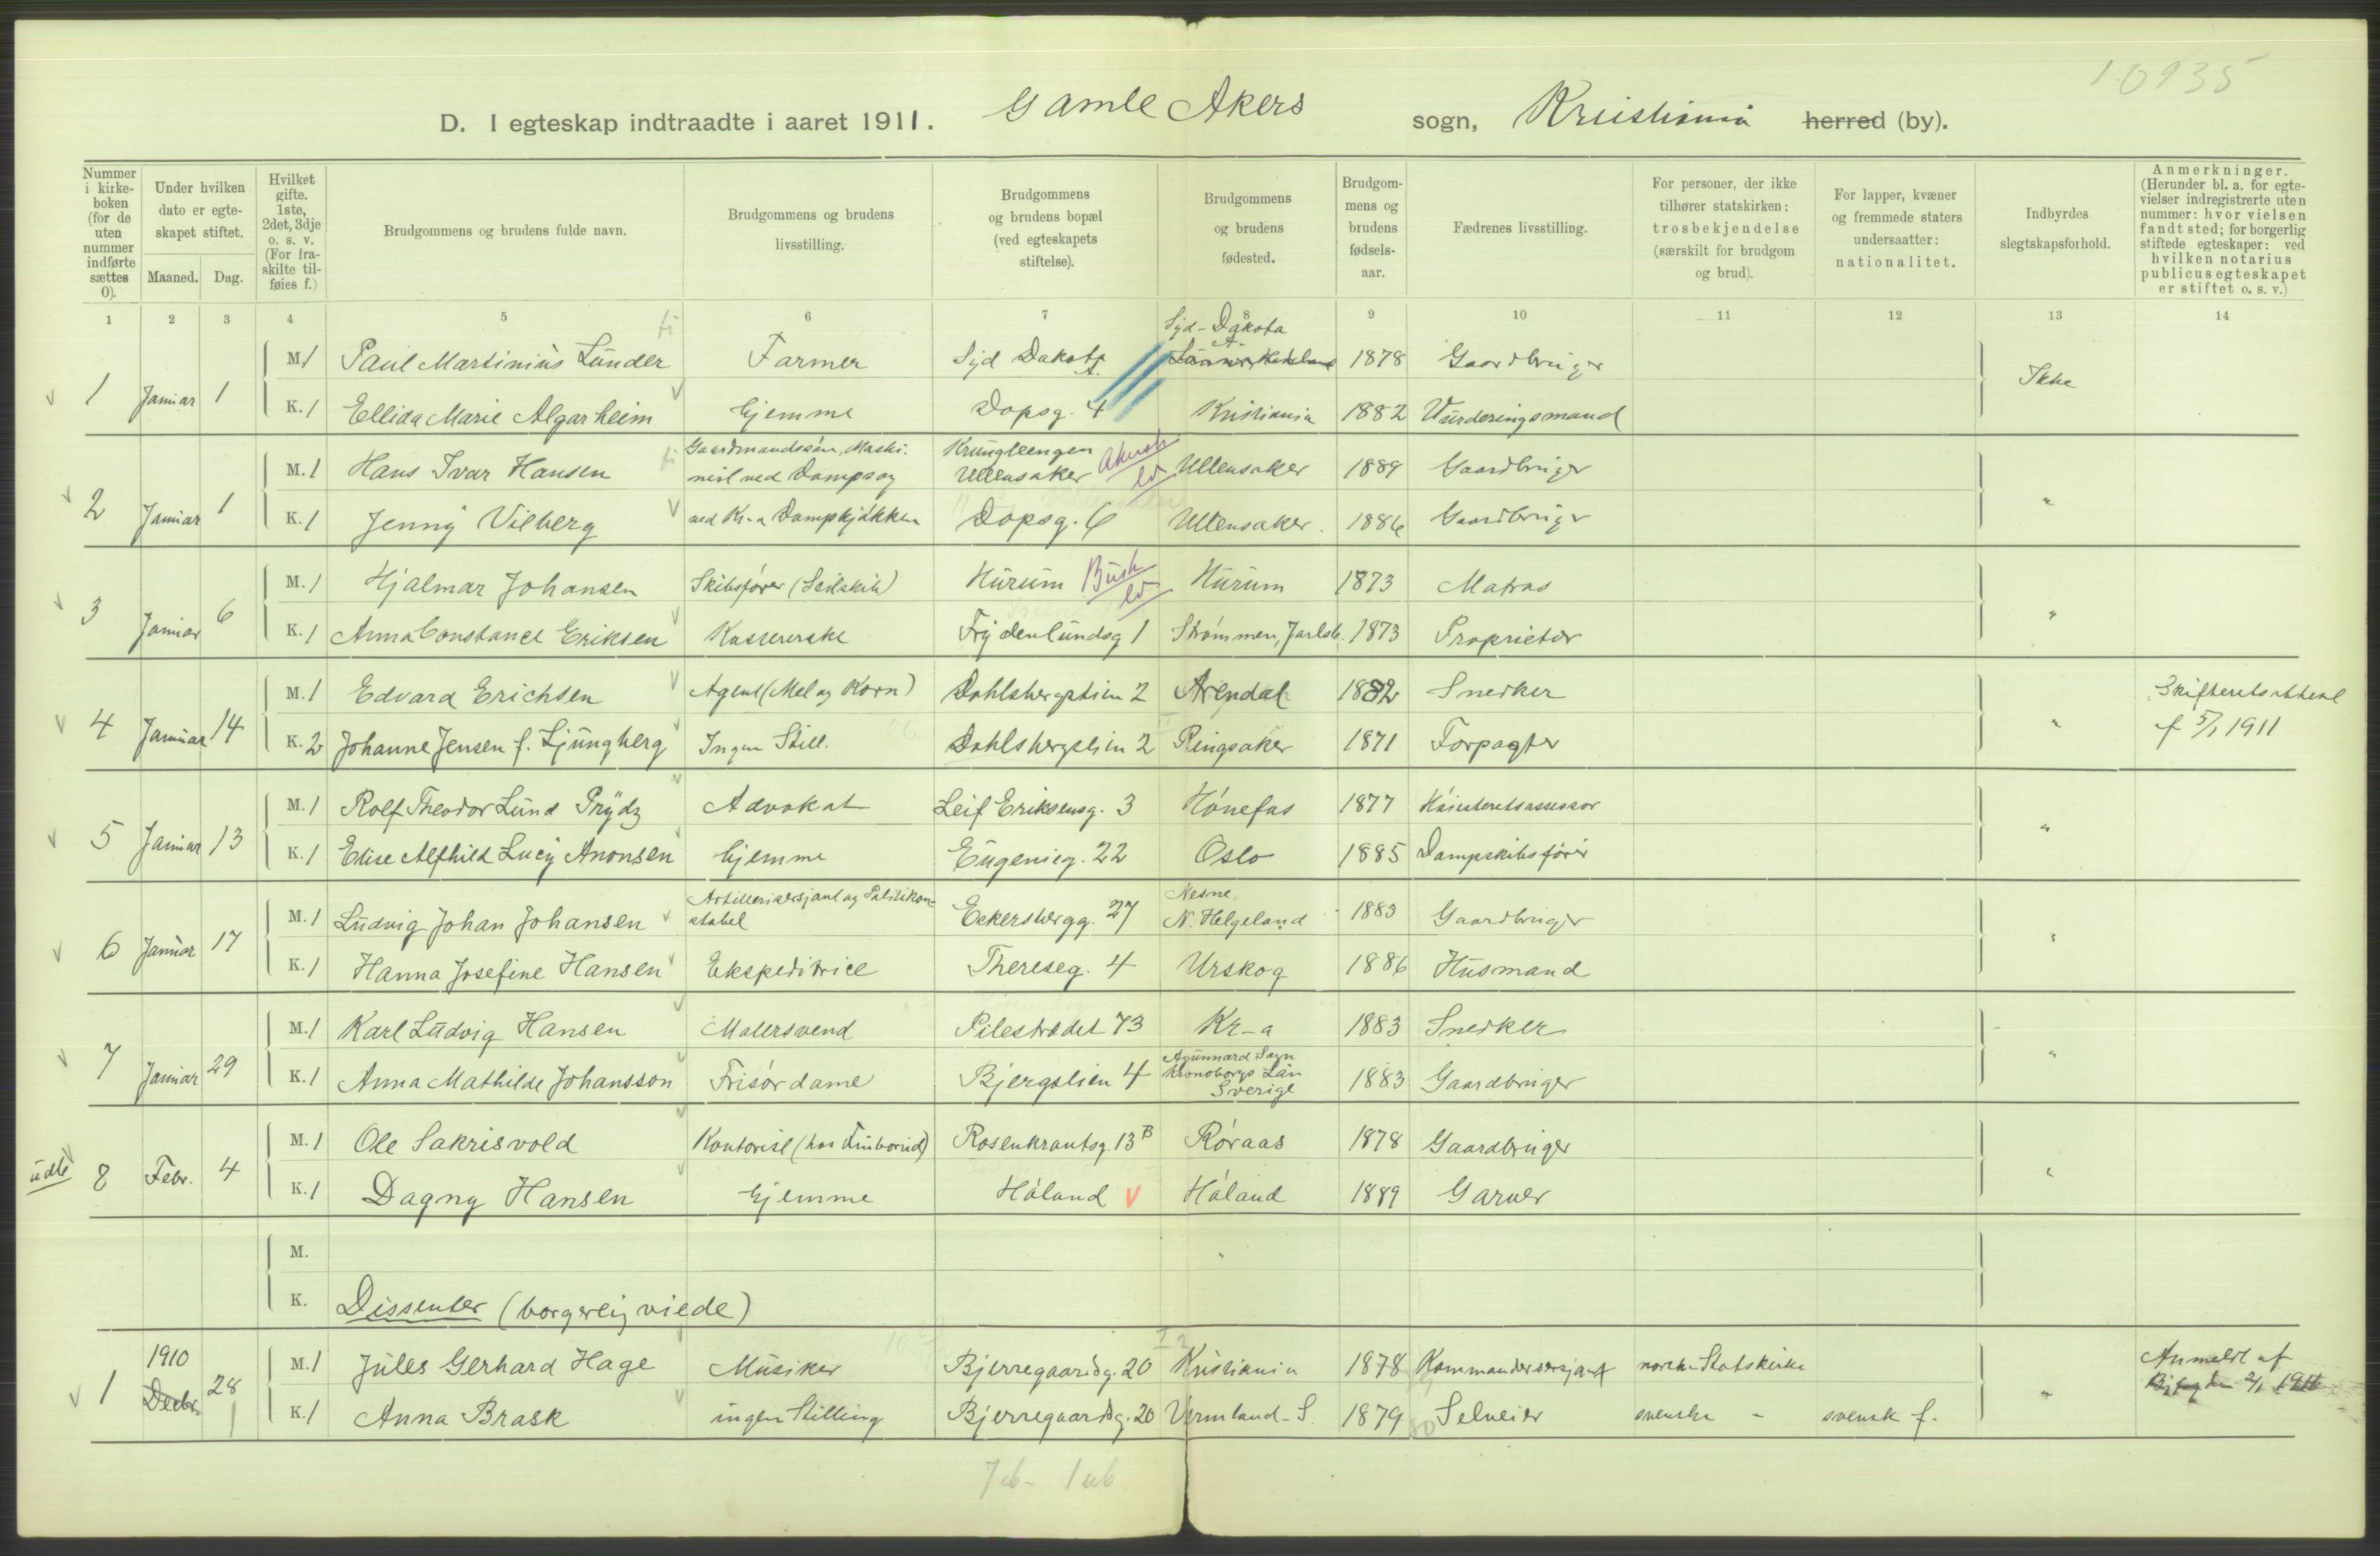 10935
D. I egteskap indtraadte i aaret 1911. Gamle Akers sogn, Kristiania herred (by).
Nummer i kirkeboken (for de uten nummer indførte sættes 0).
Under hvilken dato er egteskapet stiftet.
Maaned. Dag.
Hvilket gifte. 1ste, 2det, 3dje o. s. v. (For fraskilte tilføies f.)
Brudgommens og brudens fulde navn.
Brudgommens og brudens livsstilling.
Brudgommens og brudens bopæl (ved egteskapets stiftelse).
Brudgommens og brudens fødested.
Brudgommens og brudens fødselsaar.
Fædrenes livsstilling.
For personer, der ikke tilhører statskirken: trosbekjendelse (særskilt for brudgom og brud).
For lapper, kvæner og fremmede staters undersaatter: nationalitet.
Indbyrdes slegtskapsforhold.
Anmerkninger. (Herunder bl. a. for egtevielser indregistrerte uten nummer: hvor vielsen fandt sted; for borgerlig stiftede egteskaper: ved hvilken notarius publicus egteskapet er stiftet o. s. v.)
1 2 3 4 5 6 7 8 9 10 11 12 13 14
1 Januar 1 M. 1 Paul Martinius Lunder Farmer Syd Dakota A. Syd-Dakota A. 1878 Gaardbruger Ikke
K. 1 Ellida Marie Algarheim hjemme Dopsg. 4 Kristiania 1882 Vurderingsmand
2 Januar 1 M. 1 Hans Ivar Hansen Gaardmandssøn, Maskinist ved Dampsag Krungleengen Ullensaker Akersh Ullensaker 1889 Gaardbruger "
K. 1 Jenny Vilberg ved Kr-a Dampkjøkken Dopsg. 6 Ullensaker. 1886 Gaardbruger
3 Januar 6 M. 1 Hjalmar Johansen Skibsfører (Seilskib) Hurum Busk Hurum 1873 Matros "
K. 1 Anna Constance Eriksen Kassererske Frydenlundsg 1 Strømmen, Jarlsb. 1873 Proprietær
4 Januar 14 M. 1 Edvard Erichsen Agent (Mel og Korn) Dahlsbergstien 2 Arendal 1882 Snedker " Skifteretsattest
K. 2 Johanne Jensen f. Ljungberg Ingen Still. Dahlsbergstien 2 Ringsaker 1871 Forpagter f 5/1 1911
5 Januar 13 M. 1 Rolf Theodor Lund Prydz Advokat Leif Eriksensg. 3 Hønefos 1877 Høiesteretsassessor "
K. 1 Elise Alfhild Lucy Anonsen hjemme Eugenieg. 22 Oslo 1885 Dampskibsfører
6 Januar 17 M. 1 Ludvig Johan Johansen Artillerisersjant og Politikonstabel Eckersbergg. 27 Nesne, N. Helgeland 1883 Gaardbruger "
K. 1 Hanna Josefine Hansen Ekspeditrice Thereseg. 4 Urskog 1886 Husmand
7 Januar 29 M. 1 Karl Ludvig Hansen Malersvend Pilestrædet 73 Kr-a 1883 Snedker "
K. 1 Anna Mathilde Johansson Frisørdame Bjergstien 4 Agunnard Sogn Kronoborgs Län Sverige 1883 Gaardbruger
udte 8 Febr. 4 M. 1 Ole Sakrisvold Kontorist Rosenkrantsg. 13 B Røraas 1878 Gaardbruger "
K. 1 Dagny Hansen hjemme Høland Høland 1889 Garver
M.
K. Dissenter (borgerlig viede)
1 1910 Decbr. 28 M. 1 Jules Gerhard Hage Musiker Bjerregaardsg. 20 Kristiania 1878 Kommandersersjant norske Statskirke " Anmeldt af
K. 1 Anna Brask ingen Stilling Bjerregaardsg. 20 Vermland - S. 1879 Selveier svenske - svensk f.
7 ub - 1 ub